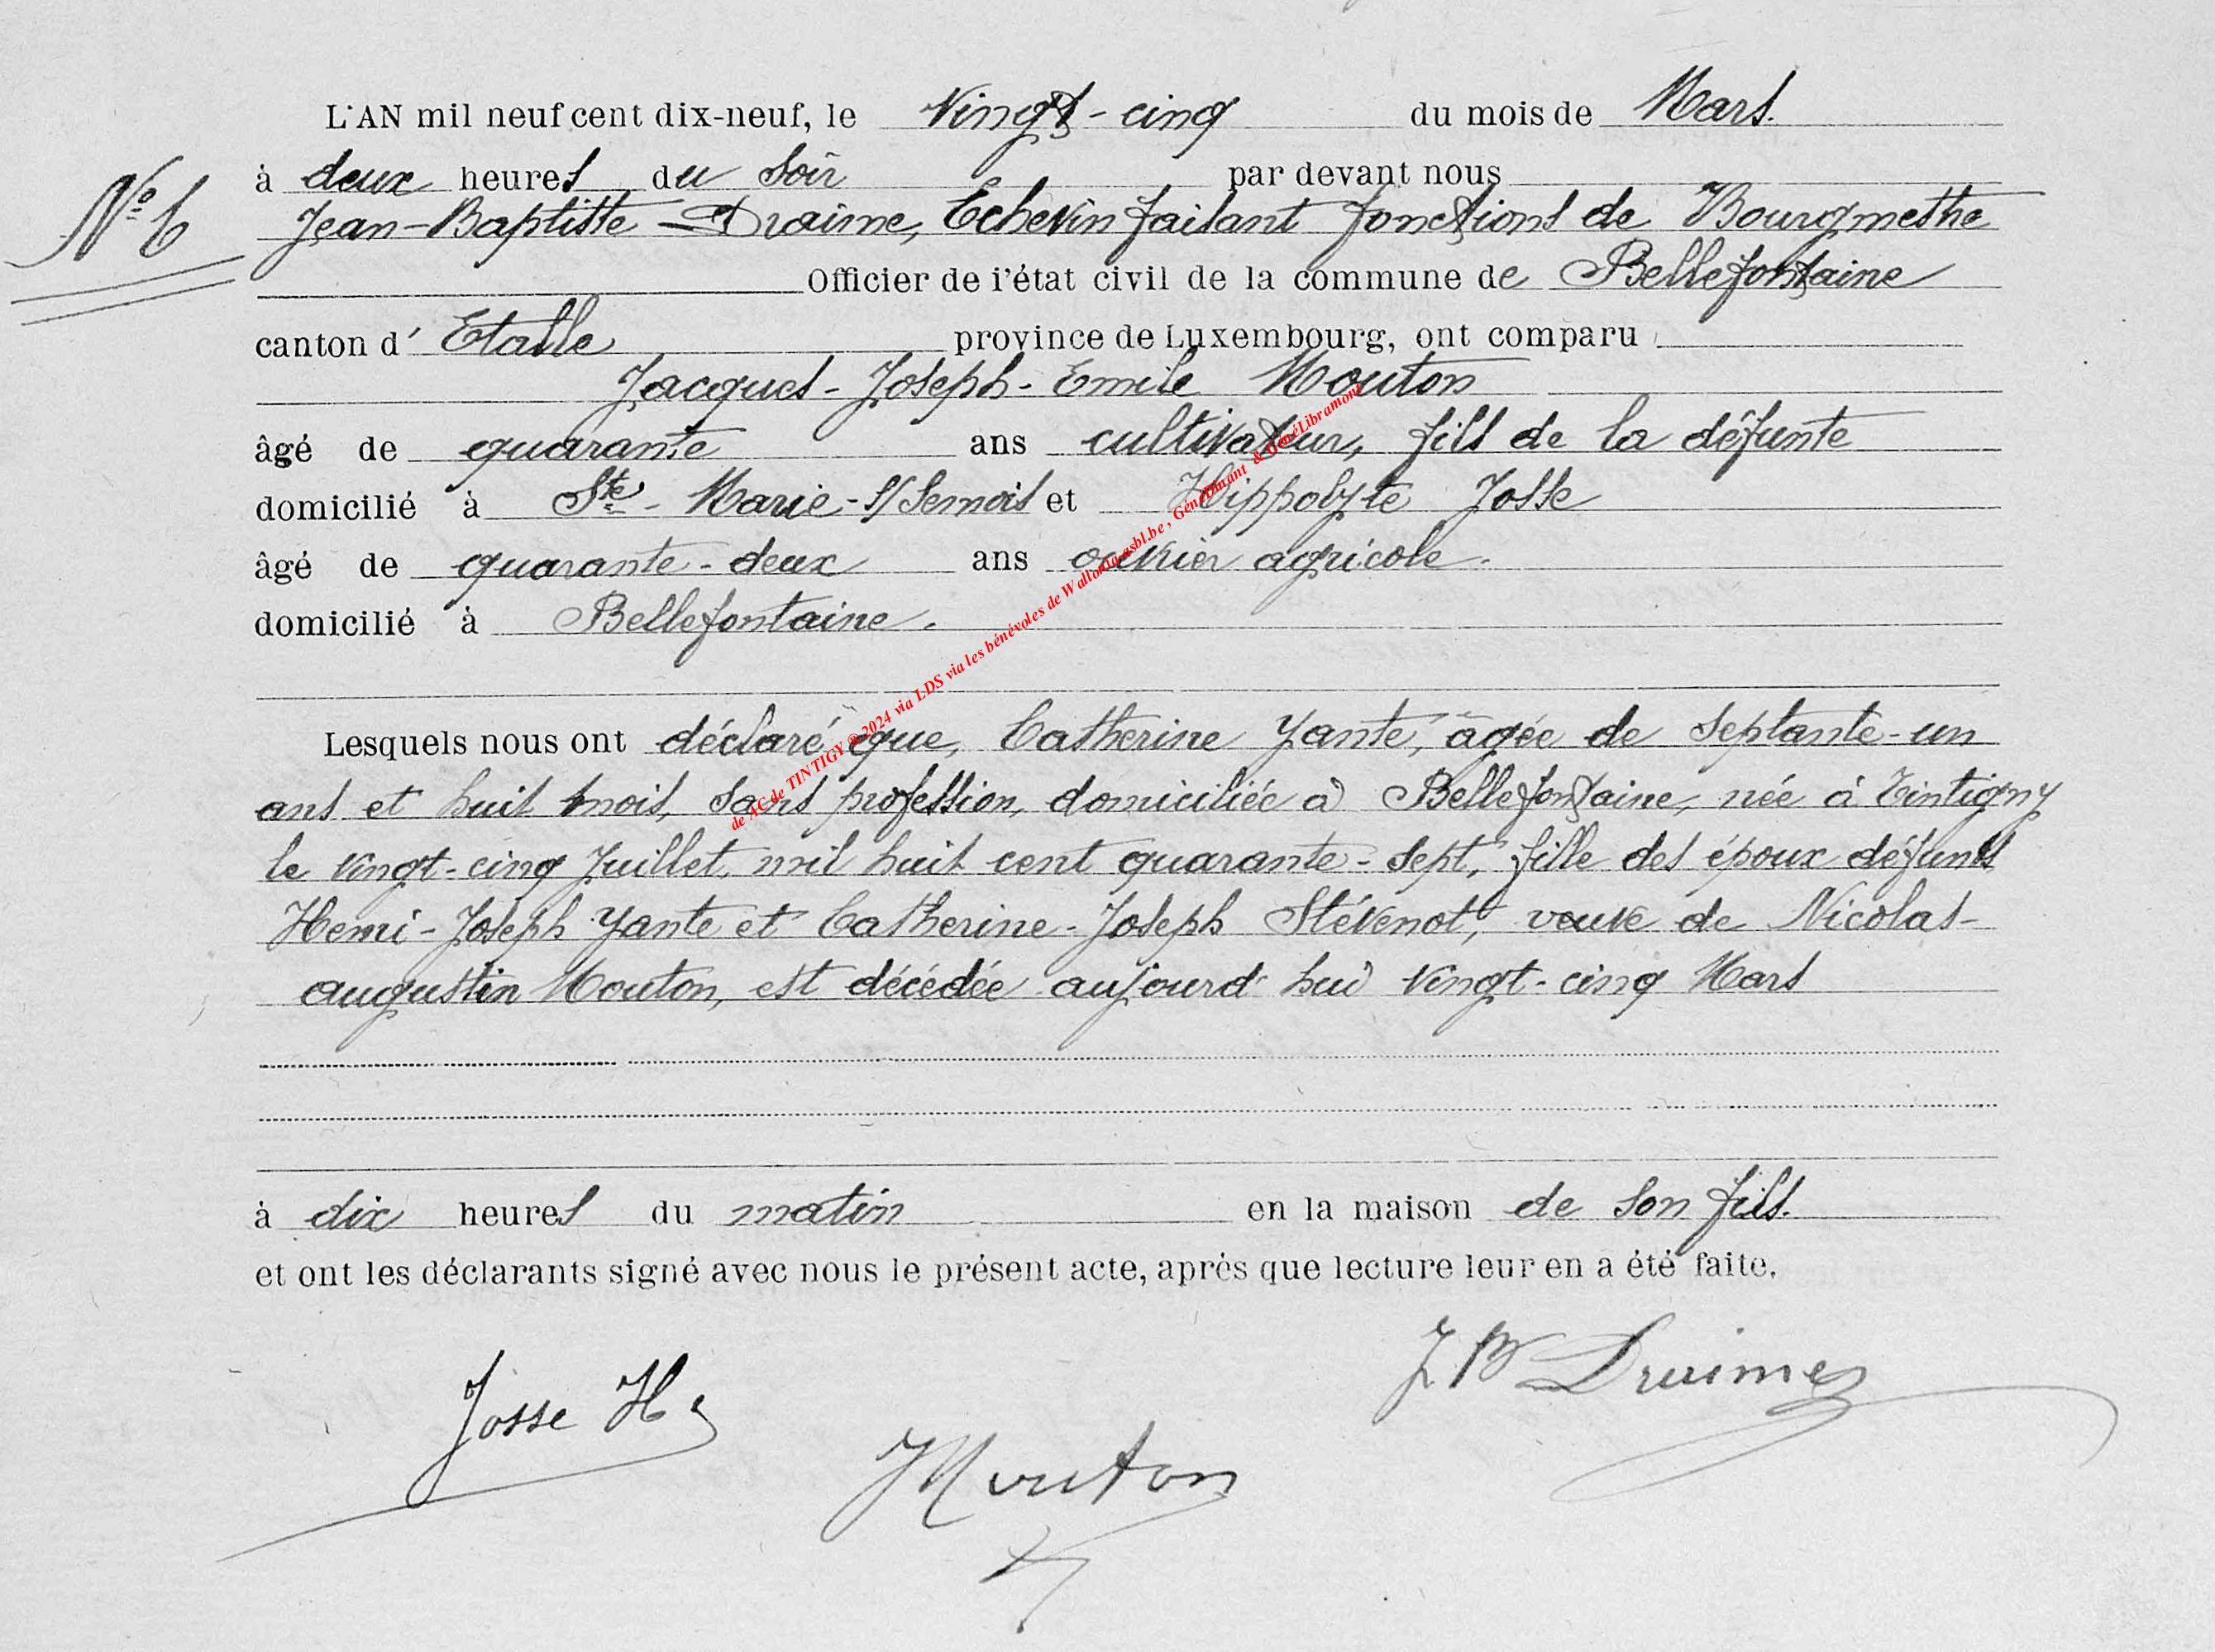 L'AN mil neuf cent dix-neuf, le Vingt-cinq du mois de Mars.
à deux heures du soir par devant nous
N° 6
Jean-Baptiste Draime, Echevin faisant fonctions de Bourgmestre
Officier de l'état civil de la commune de Bellefontaine
canton d' Etalle province de Luxembourg, ont comparu
Jacques-Joseph-Emile Mouton
âgé de quarante ans cultivateur, fils de la défunte
domicilié à Ste-Marie-s/Semois et Hippolyte Josse
âgé de quarante-deux ans ouvrier agricole.
domicilié à Bellefontaine.
Lesquels nous ont déclaré que, Catherine Yante, âgée de septante-un
ans et huit mois, sans profession, domiciliée à Bellefontaine, née à Tintigny
le vingt-cinq Juillet mil huit cent quarante-sept, fille des époux défunts
Henri-Joseph Yante et Catherine-Joseph Stévenot, veuve de Nicolas-
augustin Mouton, est décédée aujourd'hui vingt-cinq Mars
à dix heures du matin en la maison de son fils.
et ont les déclarants signé avec nous le présent acte, après que lecture leur en a été faite.
J B Draime
Josse H
Mouton
de AC de TINTIGY ® 2024 via LDS via les bénévoles de Wallonia-asbl.be, GénéDinant & GénéLibramont